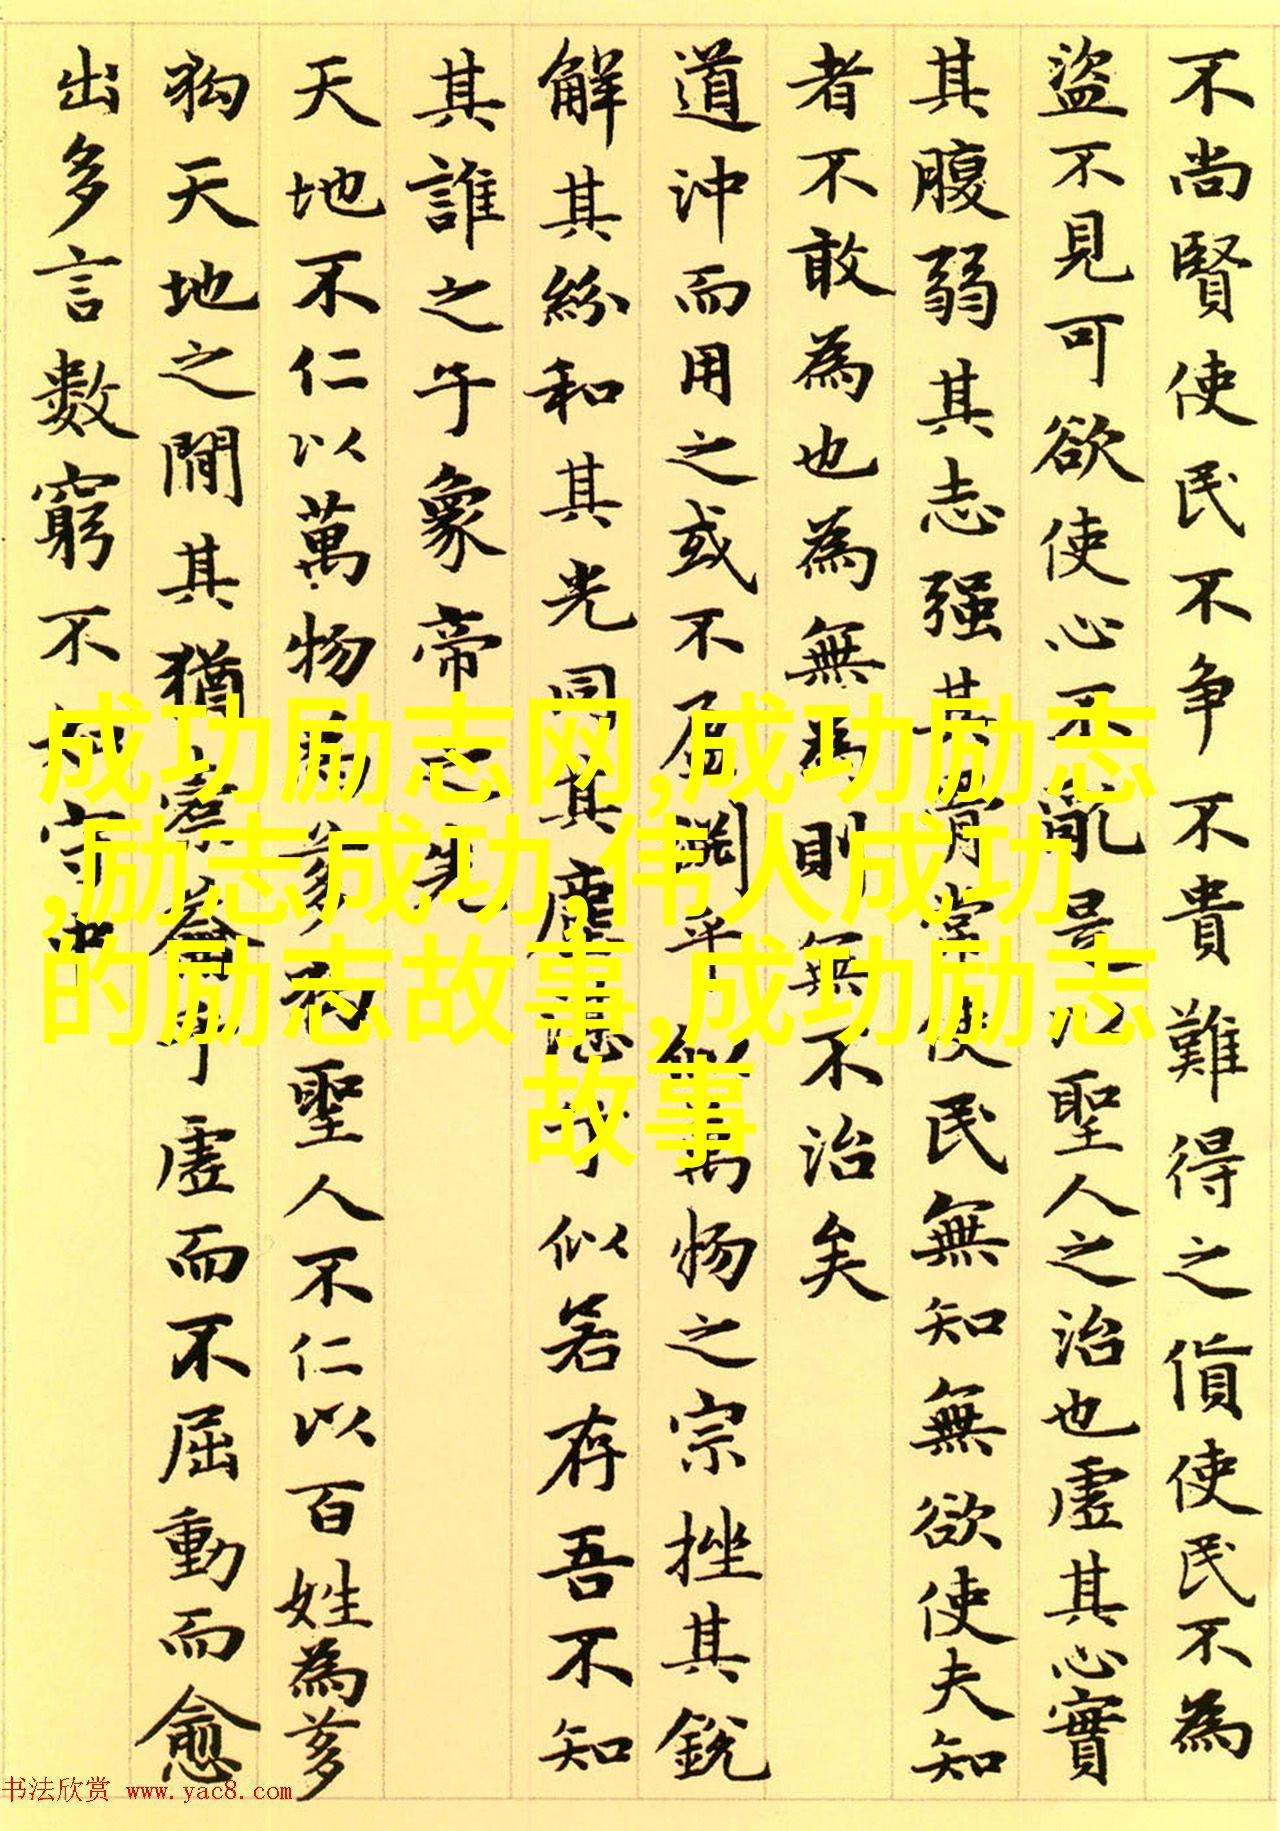 不尚賢使民不争不貴難得之貨使民不為
盜不見可欲使心不亂是以聖人之治也虛其心實
其腹弱其志强其骨常使民無知無欲使夫知
者不敢為也為無為則無不治矣
道沖而用之或不盈淵乎似萬物之宗挫其銳
解其紛和其光同其塵湛兮似若存吾不知
其誰之子象帝之先
天地不仁以萬物為芻狗聖人不仁以百姓為芻
狗天地之間其猶橐籥乎虛而不屈動而愈
出多言數窮不如守中
成功励志网,成功励志
,励志成功,伟人成功
的励志故事,成功励志
故事
书法欣赏 www.yac8.com